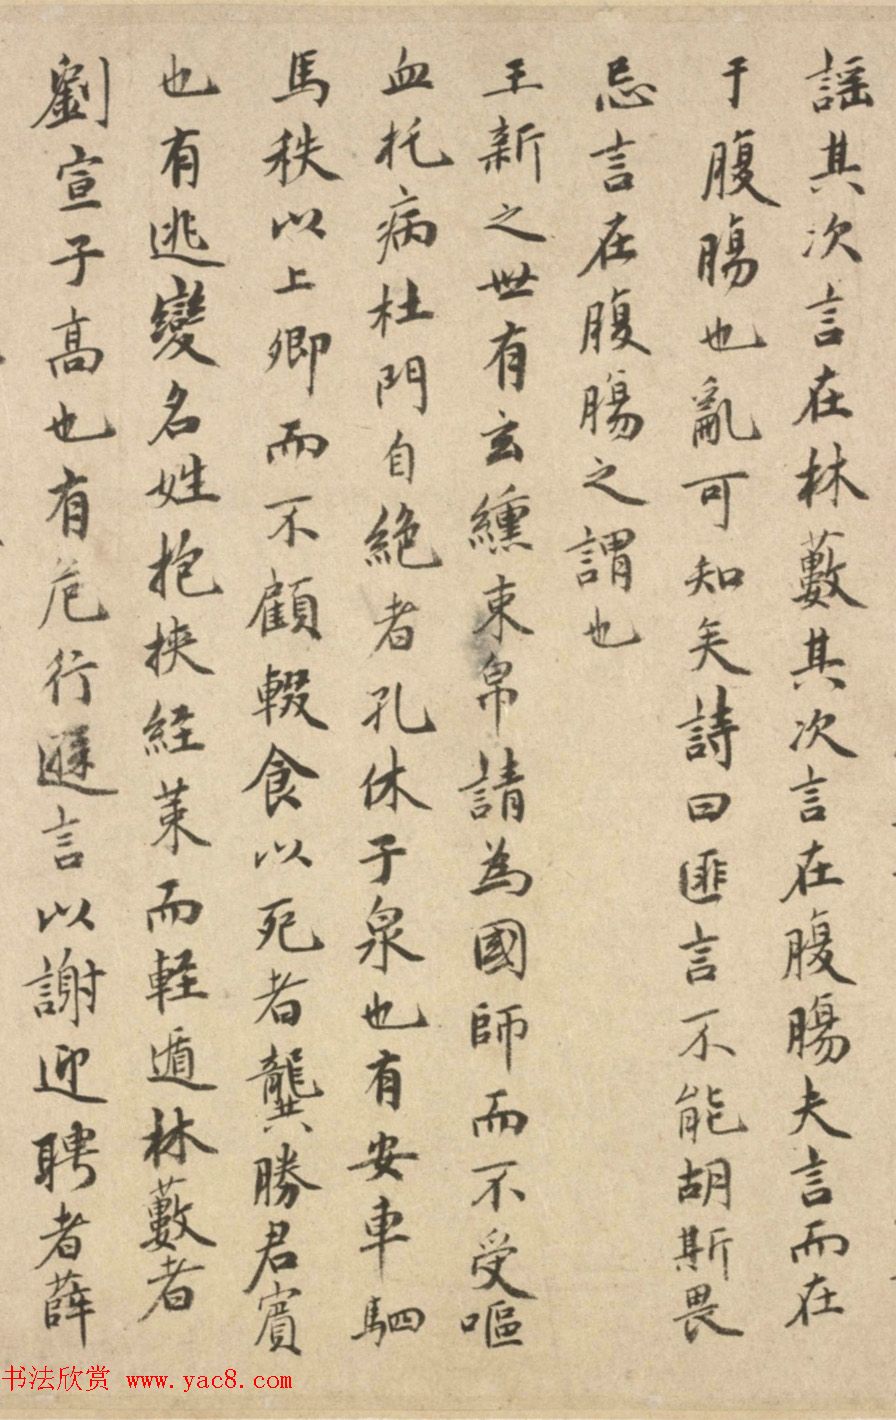 謡其次言在林藪其次言在腹腸夫言而在
于腹腸也亂可知矣詩曰匪言不能胡斯畏
忌言在腹腸之謂也
王新之世有玄纁束帛請為國師而不受嘔
血托病杜門自絶者孔休子泉也有安車駟
馬秩以上卿而不顧輟食以死者龔勝君賓
也有逃變名姓抱挟経茉而軽遁林藪者
劉宣子高也有危行遜言以謝迎聘者薛
书法欣赏 www.yac8.com